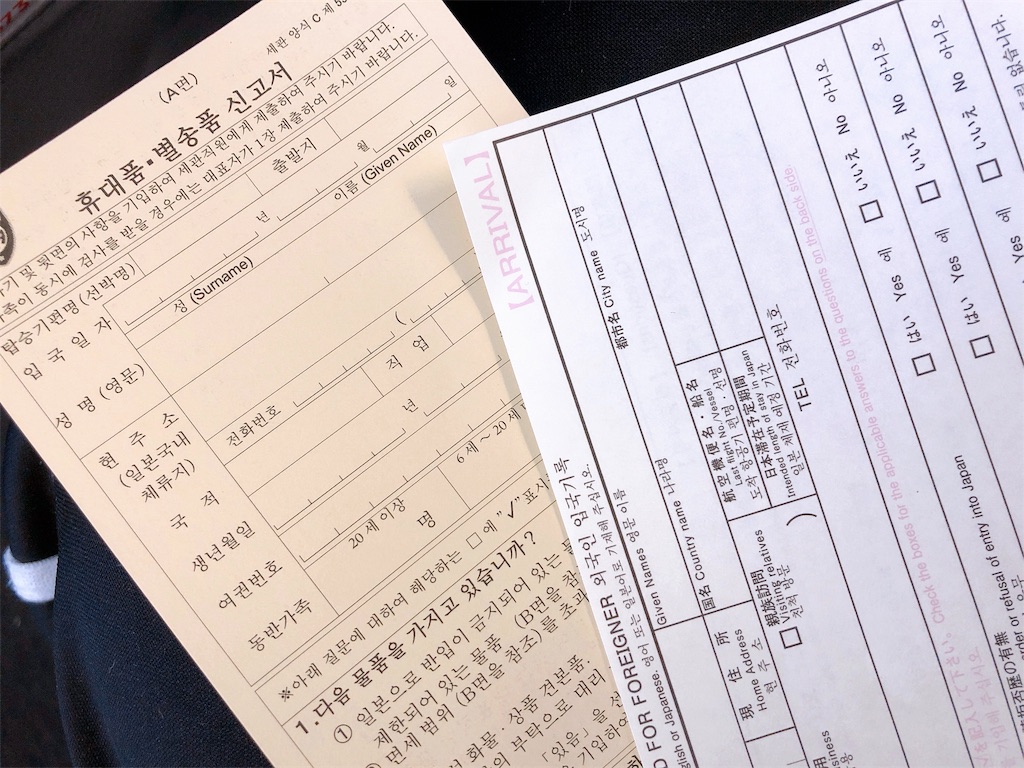 세관 양식 C 제
(A면)
휴대품·별송품 신고서
기 및 뒷면의 사항을 기입하여 세관직원에게 제출하여 주시기 바랍니다.
족이 동시에 검사를 받을 경우에는 대표자가 1장 제출하여 주시기 바랍니다.
탑승기편명(선박명)
출발지
입 국 일 자
년
월
일
성 명 (영문)
성 (Surname)
이름 (Given Name)
현 주 소
(일본국내
체류지)
전화번호
(
국 적
직 업
생년월일
년
여권번호
동반가족
20세 이상
명
6세～20세
※아래 질문에 대하여 해당하는 □ 에 "✓" 표시
1.다음 물품을 가지고 있습니까?
① 일본으로 반입이 금지되어 있는
제한되어 있는 물품 (B면을 참
면세 범위 (B면을 참조)를 초과
화물·상품 견본품,
부탁으로 대리
「있음」을 선
기입하여
【ARRIVAL】
FOR FOREIGNER 외국인 입국기록
glish or Japanese. 영어 또는 일본어로 기재해 주십시오.
Given Names 영문 이름
国名 Country name 나라명
都市名 City name 도시명
現 住 所
Home Address
현 주 소
親族訪問
□ Visiting relatives
친척 방문
)
航空機便名・船名
Last flight No./Vessel
도착 항공기 편명·선명
日本滞在予定期間
Intended length of stay in Japan
일본 체재 예정 기간
TEL 전화번호
を記入して下さい。 Check the boxes for the applicable answers to the questions on the back side.
기입해 주세요
□ はい Yes 예 □ いいえ No 아니오
or refusal of entry into Japan
□ はい Yes 예 □ いいえ No 아니오
Yes 예 □ いいえ No 아니오
없습니다.